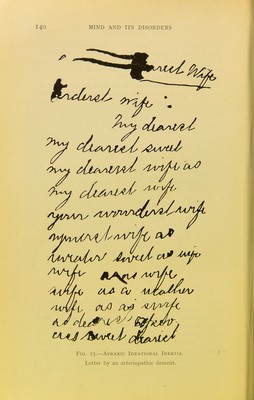 140 MIND AND ITS DISORDERS
earest Wife
erderst wife :
My dearest
my dearest sweet
my dearerst wife as
my dearest wife
your wounderst wife
wife as
sweet as wife
wife as wife
wife as a weather
wife as as swife
as
as sweet dearest
FIG. 13.—APRAXIC IDEATIONAL INERTIA.
Letter by an arteriopathic dement.